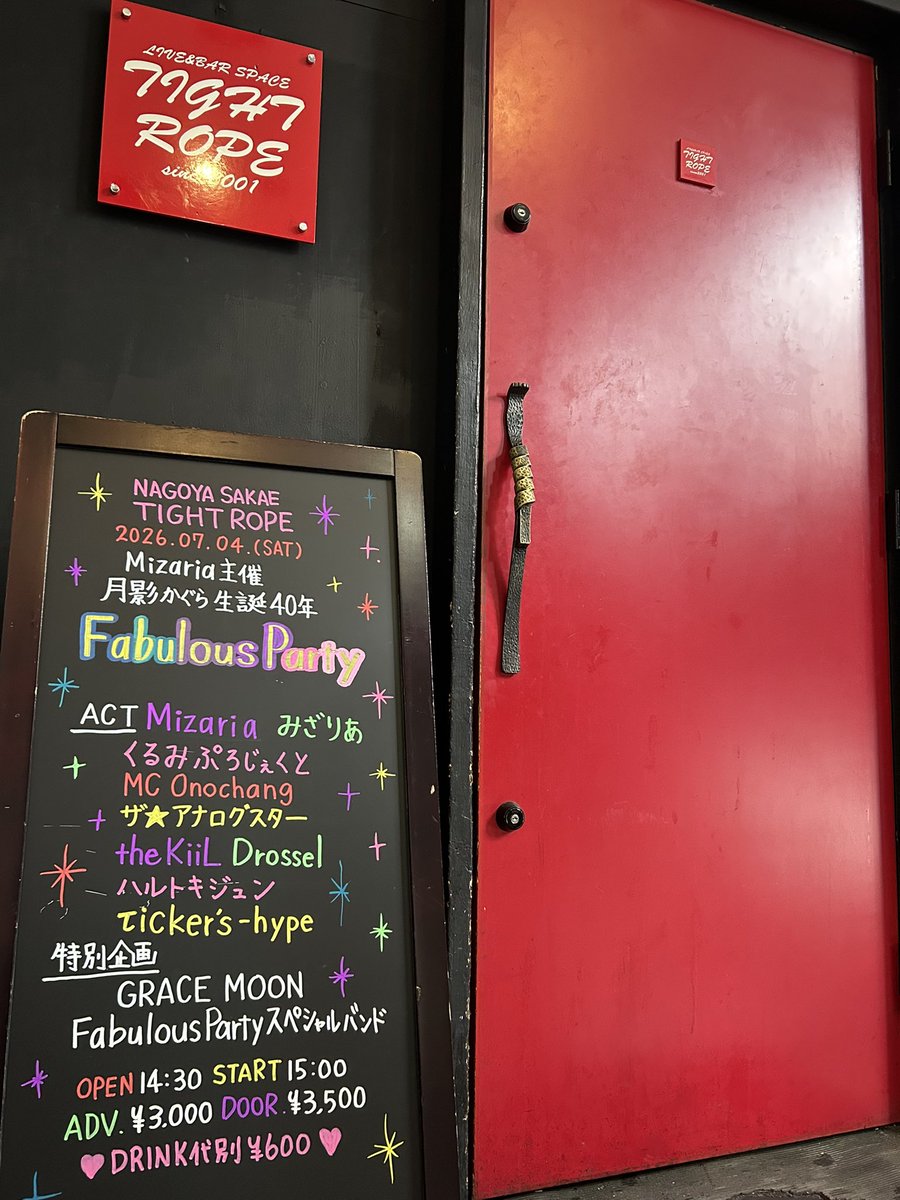 LIVE&BAR SPACE
TIGHT
ROPE
LIVE&BAR SPACE
TIGHT
ROPE
since2001
NAGOYA SAKAE
TIGHT ROPE
2026.07.04.(SAT)
Mizaria主催
月影かぐら生誕40年
Fabulous Party
ACT Mizaria みざりあ
くるみぷろじぇくと
MC Onochang
ザ★アナログスター
the KiiL Drossel
ハルトキジュン
Ticker's-hype
特別企画
GRACE MOON
Fabulous Partyスペシャルバンド
OPEN 14:30 START 15:00
ADV. ¥3,000 DOOR. ¥3,500
♥DRINK代別¥600♥